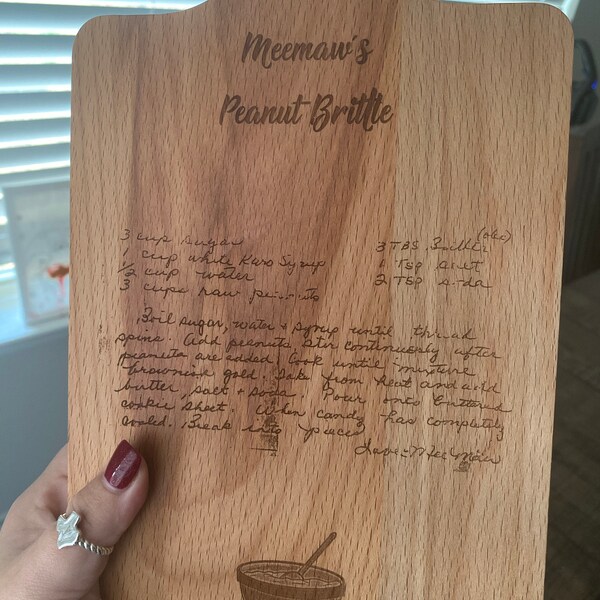 Meemaw's
Peanut Brittle
3 cup sugar
1 cup white Karo Syrup
1/2 cup water
3 cups raw peanuts
(oleo)
3 TBS Butter
1 Tsp salt
2 Tsp soda
Boil sugar, water + syrup until thread
spins. Add peanuts. Stir continuously after
peanuts are added. Cook until mixture
brownish gold. Take from heat and add
butter, salt + soda. Pour onto buttered
cookie sheet. When candy has completely
cooled. Break into pieces
Love - MeeMaw